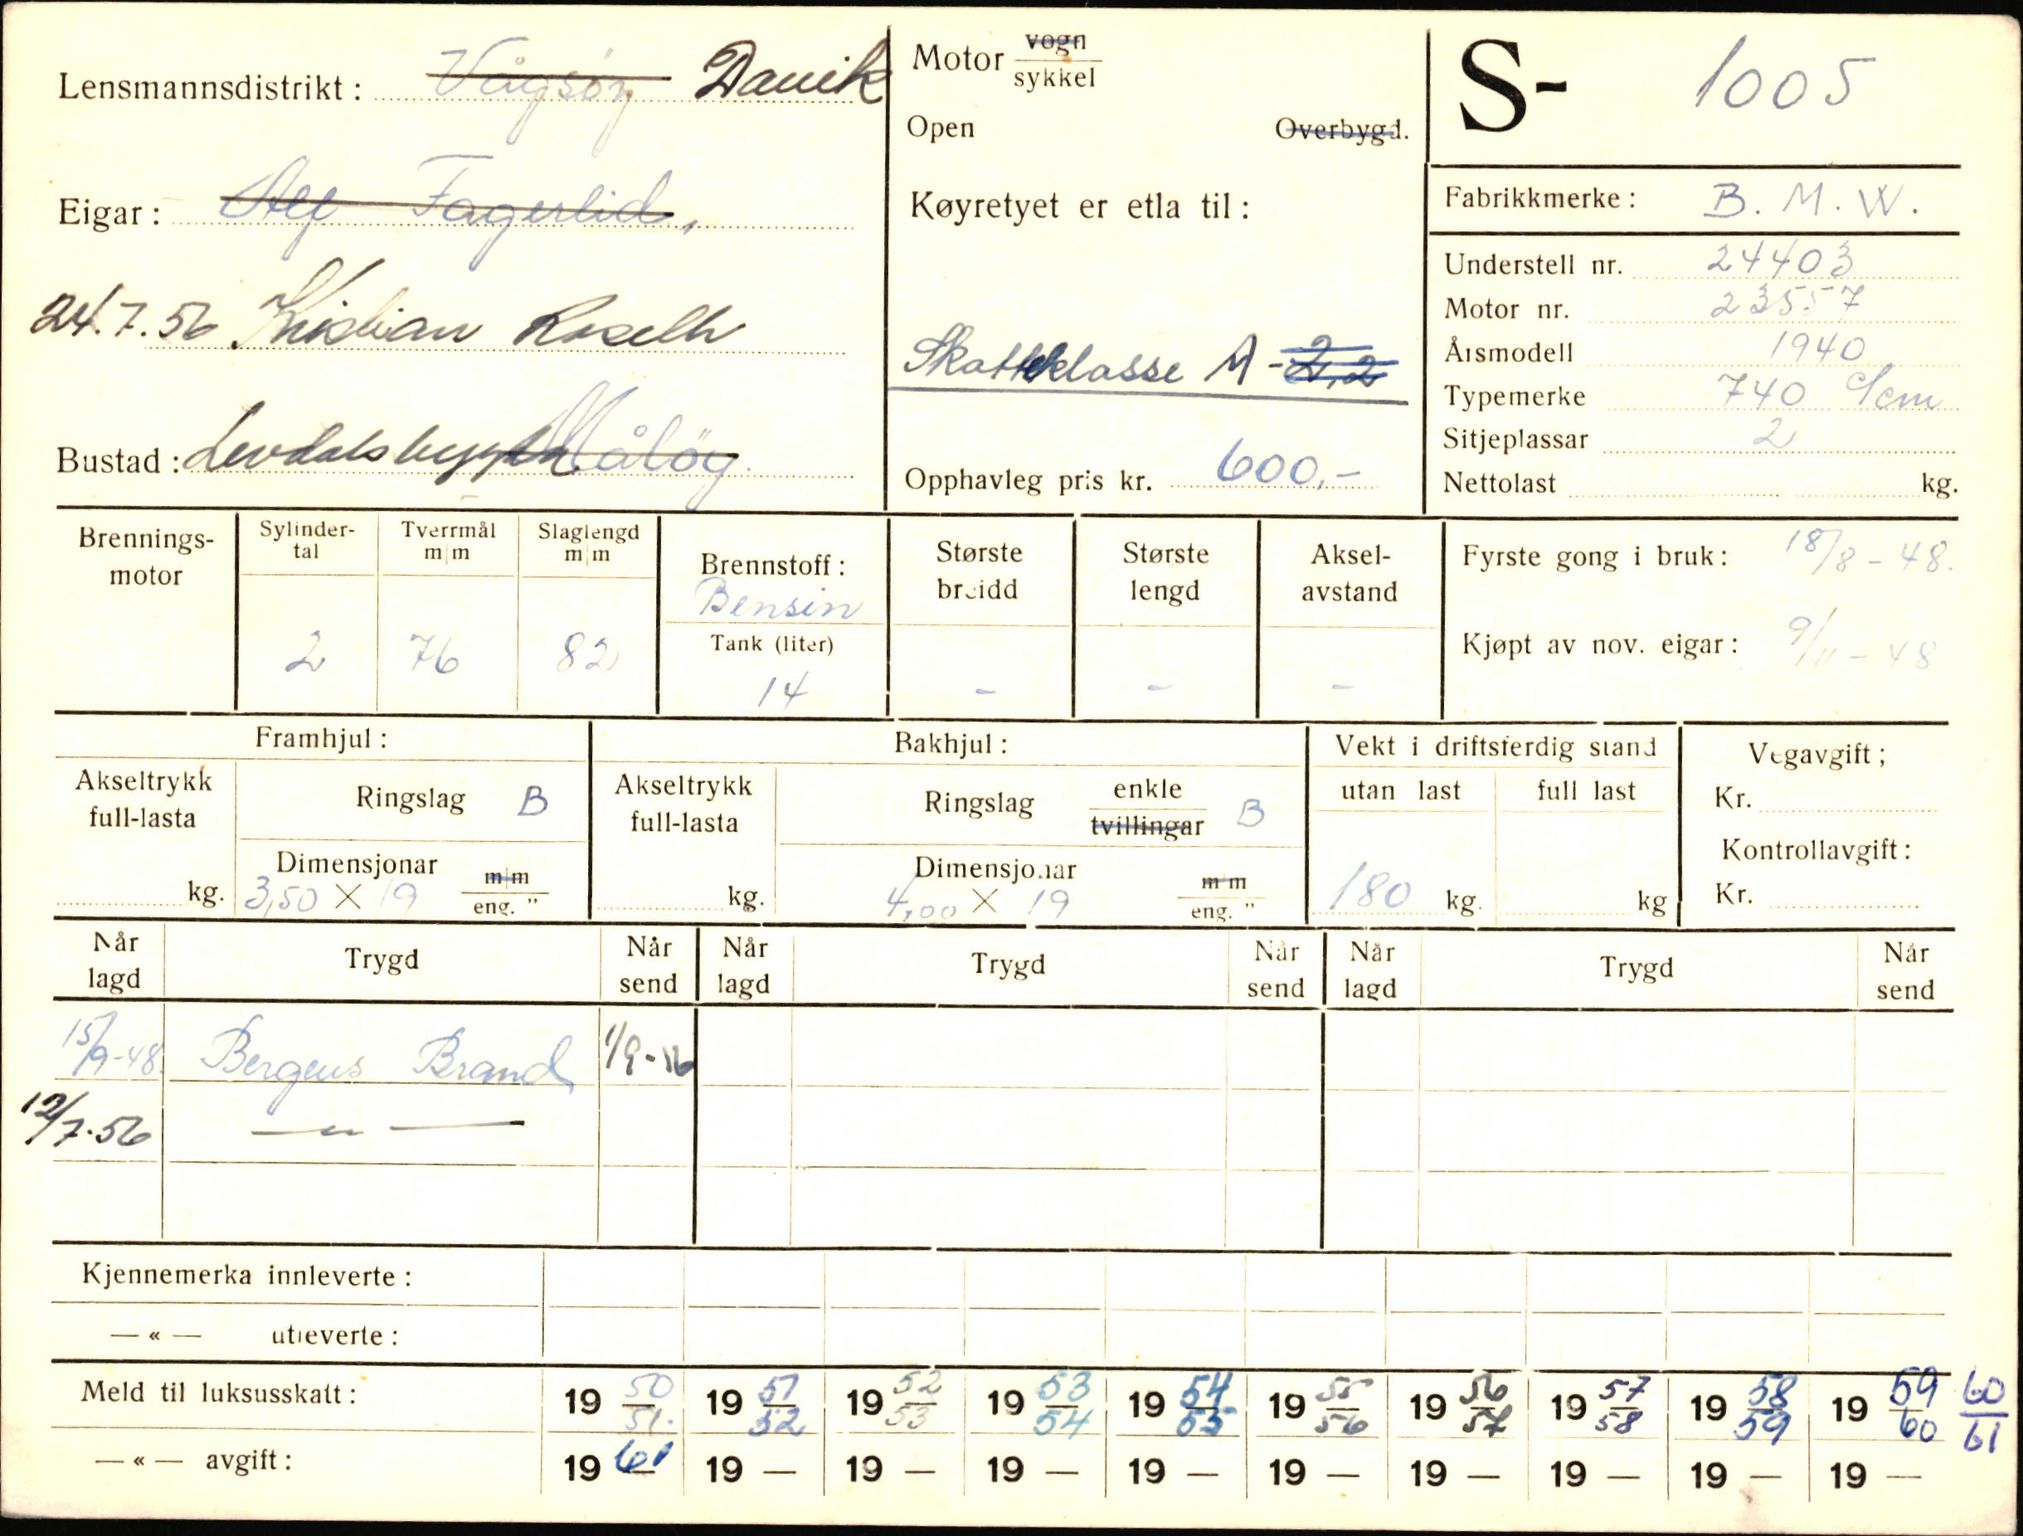 Lensmannsdistrikt: Vågsøy Davik
Eigar: Alf Fagerlid,
24.7.56 Kristian Roseth
Bustad: Levdalsbygda Måløy
Motor vogn
sykkel
Open Overbygd.
Køyretyet er etla til:
Skatteklasse A-2,2
Opphavleg pris kr. 600,-
S- 1005
Fabrikkmerke: B. M. W.
Understell nr. 24403
Motor nr. 23557
Årsmodell 1940
Typemerke 740 ccm
Sitjeplassar 2
Nettolast kg.
Brennings-
motor
Sylinder-
tal
2
Tverrmål
m/m
76
Slaglengd
m/m
82
Brennstoff:
Bensin
Tank (liter)
14
Største
breidd
-
Største
lengd
-
Aksel-
avstand
-
Fyrste gong i bruk: 18/8-48.
Kjøpt av nov. eigar: 9/11-48
Framhjul:
Akseltrykk
full-lasta
kg.
Ringslag B
Dimensjonar
3,50 X 19 m/m
eng. "
Bakhjul:
Akseltrykk
full-lasta
kg.
Ringslag enkle
tvillingar B
Dimensjonar
4,00 X 19 m/m
eng. "
Vekt i driftsferdig stand
utan last full last
180 kg. kg
Vegavgift;
Kr.
Kontrollavgift:
Kr.
Når
lagd
Trygd
Når
send
Når
lagd
Trygd
Når
send
Når
lagd
Trygd
Når
send
15/9-48. Bergens Brand 1/9-56
12/7.56 — " —
Kjennemerka innleverte:
— « — utleverte:
Meld til luksusskatt: 19 50/51. 19 51/52 19 52/53 19 53/54 19 54/55 19 55/56 19 56/57 19 57/58 19 58/59 19 59/60 60/61
— « — avgift: 19 61 19 — 19 — 19 — 19 — 19 — 19 — 19 — 19 — 19 —